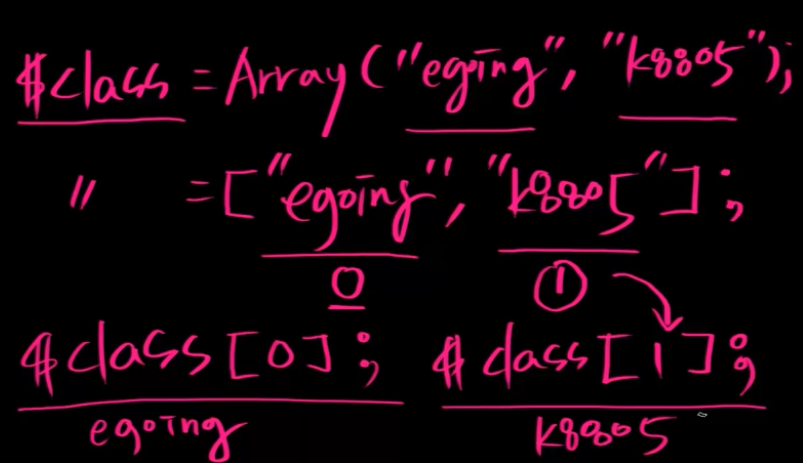 $class = Array("egoing", "k8805");
〃 = ["egoing", "k8805"];
0 ①
$class[0]; $class[1];
egoing k8805